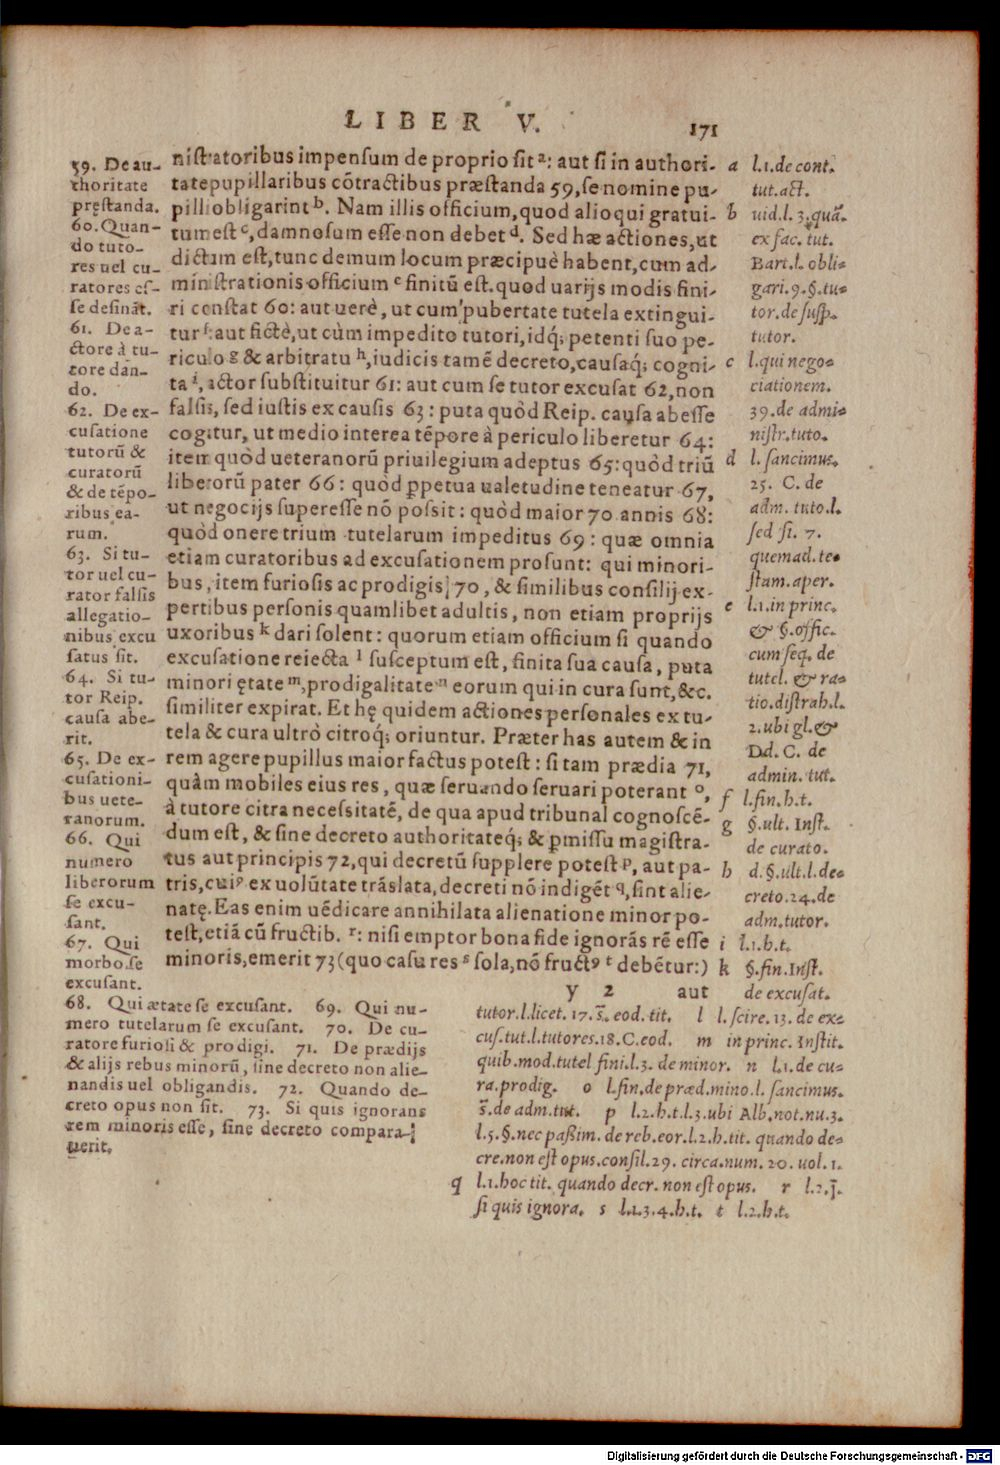 LIBER V. 171
niſtratoribus impenſum de proprio ſit ᵃ: aut ſi in authori-
tate pupillaribus cõtractibus præſtanda 59, ſe nomine pu-
pilli obligarint ᵇ. Nam illis officium, quod alioqui gratui-
tum eſt ᶜ, damnoſum eſſe non debet ᵈ. Sed hæ actiones, ut
dictum eſt, tunc demum locum præcipuè habent, cum ad-
miniſtrationis officium ᵉ finitũ eſt. quod uarijs modis fini-
ri conſtat 60: aut uerè, ut cum pubertate tutela extingui-
tur ᶠ: aut fictè, ut cùm impedito tutori, idq́; petenti ſuo pe-
riculo ᵍ & arbitratu ʰ, iudicis tamẽ decreto, cauſaq́; cogni-
ta ⁱ, actor ſubſtituitur 61: aut cum ſe tutor excuſat 62, non
falſis, ſed iuſtis ex cauſis 63: puta quòd Reip. cauſa abeſſe
cogitur, ut medio interea tẽpore à periculo liberetur 64:
item quòd ueteranorũ priuilegium adeptus 65: quòd triũ
liberorũ pater 66: quòd ꝑpetua ualetudine teneatur 67,
ut negocijs ſupereſſe nõ poſsit: quòd maior 70 annis 68:
quòd onere trium tutelarum impeditus 69: quæ omnia
etiam curatoribus ad excuſationem proſunt: qui minori-
bus, item furioſis ac prodigis 70, & ſimilibus conſilij ex-
pertibus perſonis quamlibet adultis, non etiam proprijs
uxoribus ᵏ dari ſolent: quorum etiam officium ſi quando
excuſatione reiecta ˡ ſuſceptum eſt, finita ſua cauſa, puta
minori ętate ᵐ, prodigalitate ⁿ eorum qui in cura ſunt, &c.
ſimiliter expirat. Et hę quidem actiones perſonales ex tu-
tela & cura ultrò citroq́; oriuntur. Præter has autem & in
rem agere pupillus maior factus poteſt: ſi tam prædia 71,
quàm mobiles eius res, quæ ſeruando ſeruari poterant ᵒ,
à tutore citra neceſsitatẽ, de qua apud tribunal cognoſcẽ-
dum eſt, & ſine decreto authoritateq́; & ꝑmiſſu magiſtra-
tus aut principis 72, qui decretũ ſupplere poteſt ᵖ, aut pa-
tris, cuiꝰ ex uolũtate trãslata, decreti nõ indigẽt ᑫ, ſint alie-
natę. Eas enim uẽdicare annihilata alienatione minor po-
teſt, etiã cũ fructib. ʳ: niſi emptor bona fide ignorãs rẽ eſſe
minoris, emerit 73 (quo caſu res ˢ ſola, nõ fructꝰ ᵗ debẽtur:)
y 2 aut
59. De au-
thoritate
pręſtanda.
60. Quan-
do tuto-
res uel cu-
ratores eſ-
ſe deſinãt.
61. De a-
ctore à tu-
tore dan-
do.
62. De ex-
cuſatione
tutorũ &
curatorũ
& de tẽpo-
ribus ea-
rum.
63. Si tu-
tor uel cu-
rator falſis
allegatio-
nibus excu
ſatus ſit.
64. Si tu-
tor Reip.
cauſa abe-
rit.
65. De ex-
cuſationi-
bus uete-
ranorum.
66. Qui
numero
liberorum
ſe excu-
ſant.
67. Qui
morbo ſe
excuſant.
68. Qui ætate ſe excuſant. 69. Qui nu-
mero tutelarum ſe excuſant. 70. De cu-
ratore furioſi & prodigi. 71. De prædijs
& alijs rebus minorũ, ſine decreto non alie-
nandis uel obligandis. 72. Quando de-
creto opus non ſit. 73. Si quis ignorans
rem minoris eſſe, ſine decreto compara-
uerit.
a l.1. de cont.
tut. act.
b uid. l. 3. quã.
ex fac. tut.
Bart. l. obli-
gari. 9. §. tu-
tor. de ſuſp.
tutor.
c l. qui nego-
ciationem.
39. de admi-
niſtr. tuto.
d l. ſancimus.
25. C. de
adm. tuto. l.
ſed ſi. 7.
quemad. te-
ſtam. aper.
e l.1. in princ.
& §. offic.
cum ſeq. de
tutel. & ra-
tio. diſtrah. l.
2. ubi gl. &
Dd. C. de
admin. tut.
f l. fin. h. t.
g §. ult. Inſt.
de curato.
h d. §. ult. l. de-
creto. 24. de
adm. tutor.
i l.1. h. t.
k §. fin. Inſt.
de excuſat.
tutor. l. licet. 17. s̃. eod. tit. l l. ſcire. 13. de ex-
cuſ. tut. l. tutores. 18. C. eod. m in princ. Inſtit.
quib. mod. tutel fini. l. 3. de minor. n l.1. de cu-
ra. prodig. o l. fin. de præd. mino. l. ſancimus.
s̃. de adm. tut. p l.2. h. t. l. 3. ubi Alb. not. nu. 3.
l. 5. §. nec paßim. de reb. eor. l. 2. h. tit. quando de-
cre. non eſt opus. conſil. 29. circa num. 20. uol. 1.
q l.1. hoc tit. quando decr. non eſt opus. r l.2. j̃.
ſi quis ignora. s l.1.3.4. h. t. t l.2. h. t.
Digitalisierung gefördert durch die Deutsche Forschungsgemeinschaft - DFG